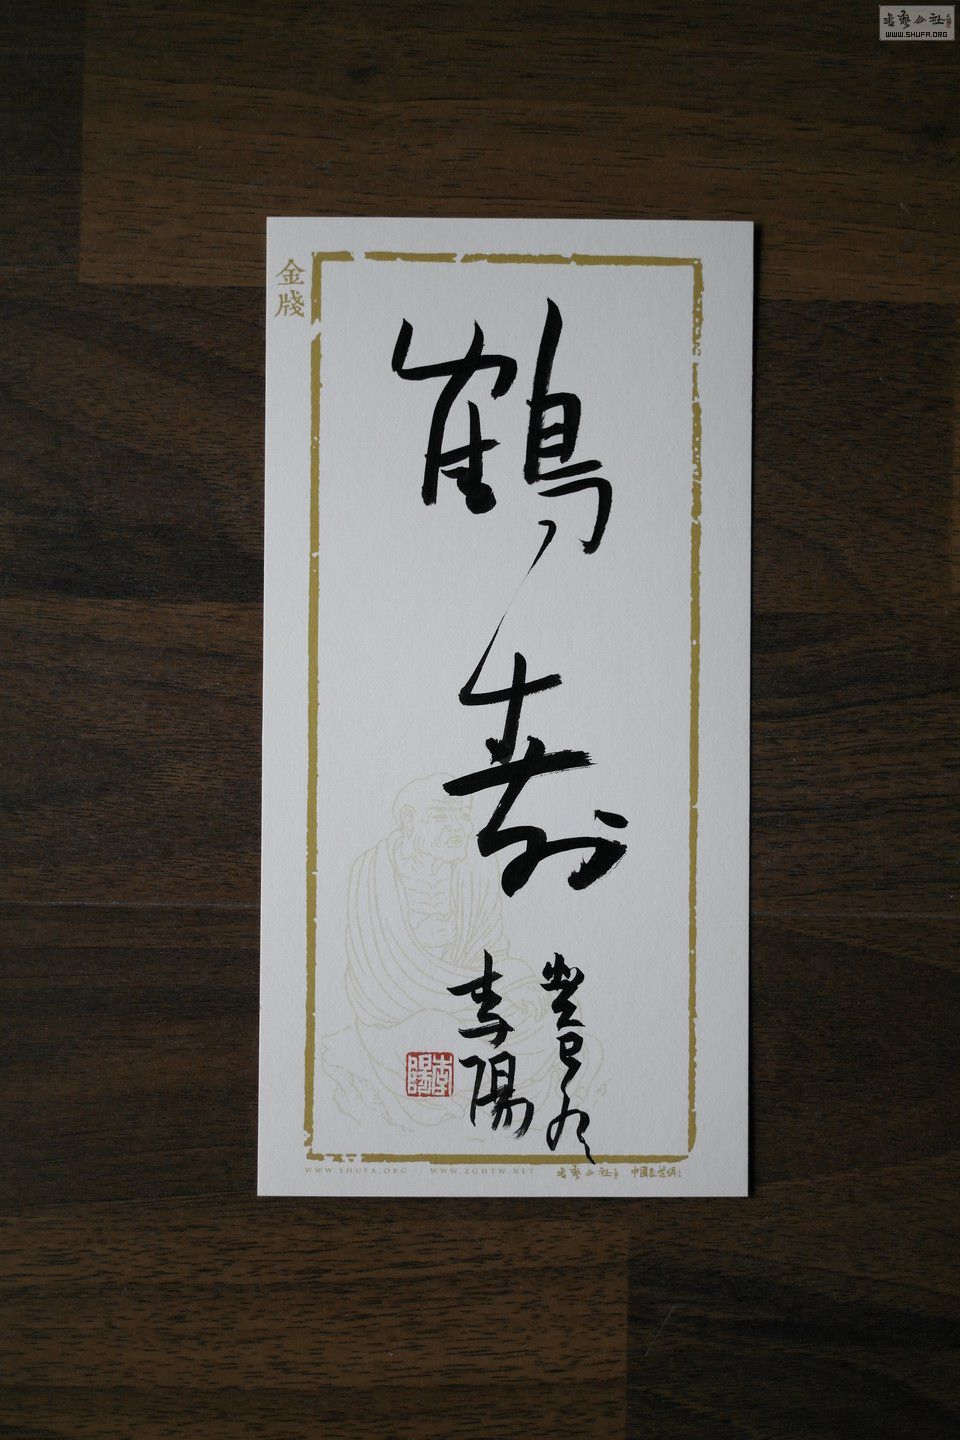 書藝公社
WWW.SHUFA.ORG
金牋
鶴壽
癸巳九
李陽
李陽
WWW.SHUFA.ORG // WWW.ZGHTW.NET
書藝公社